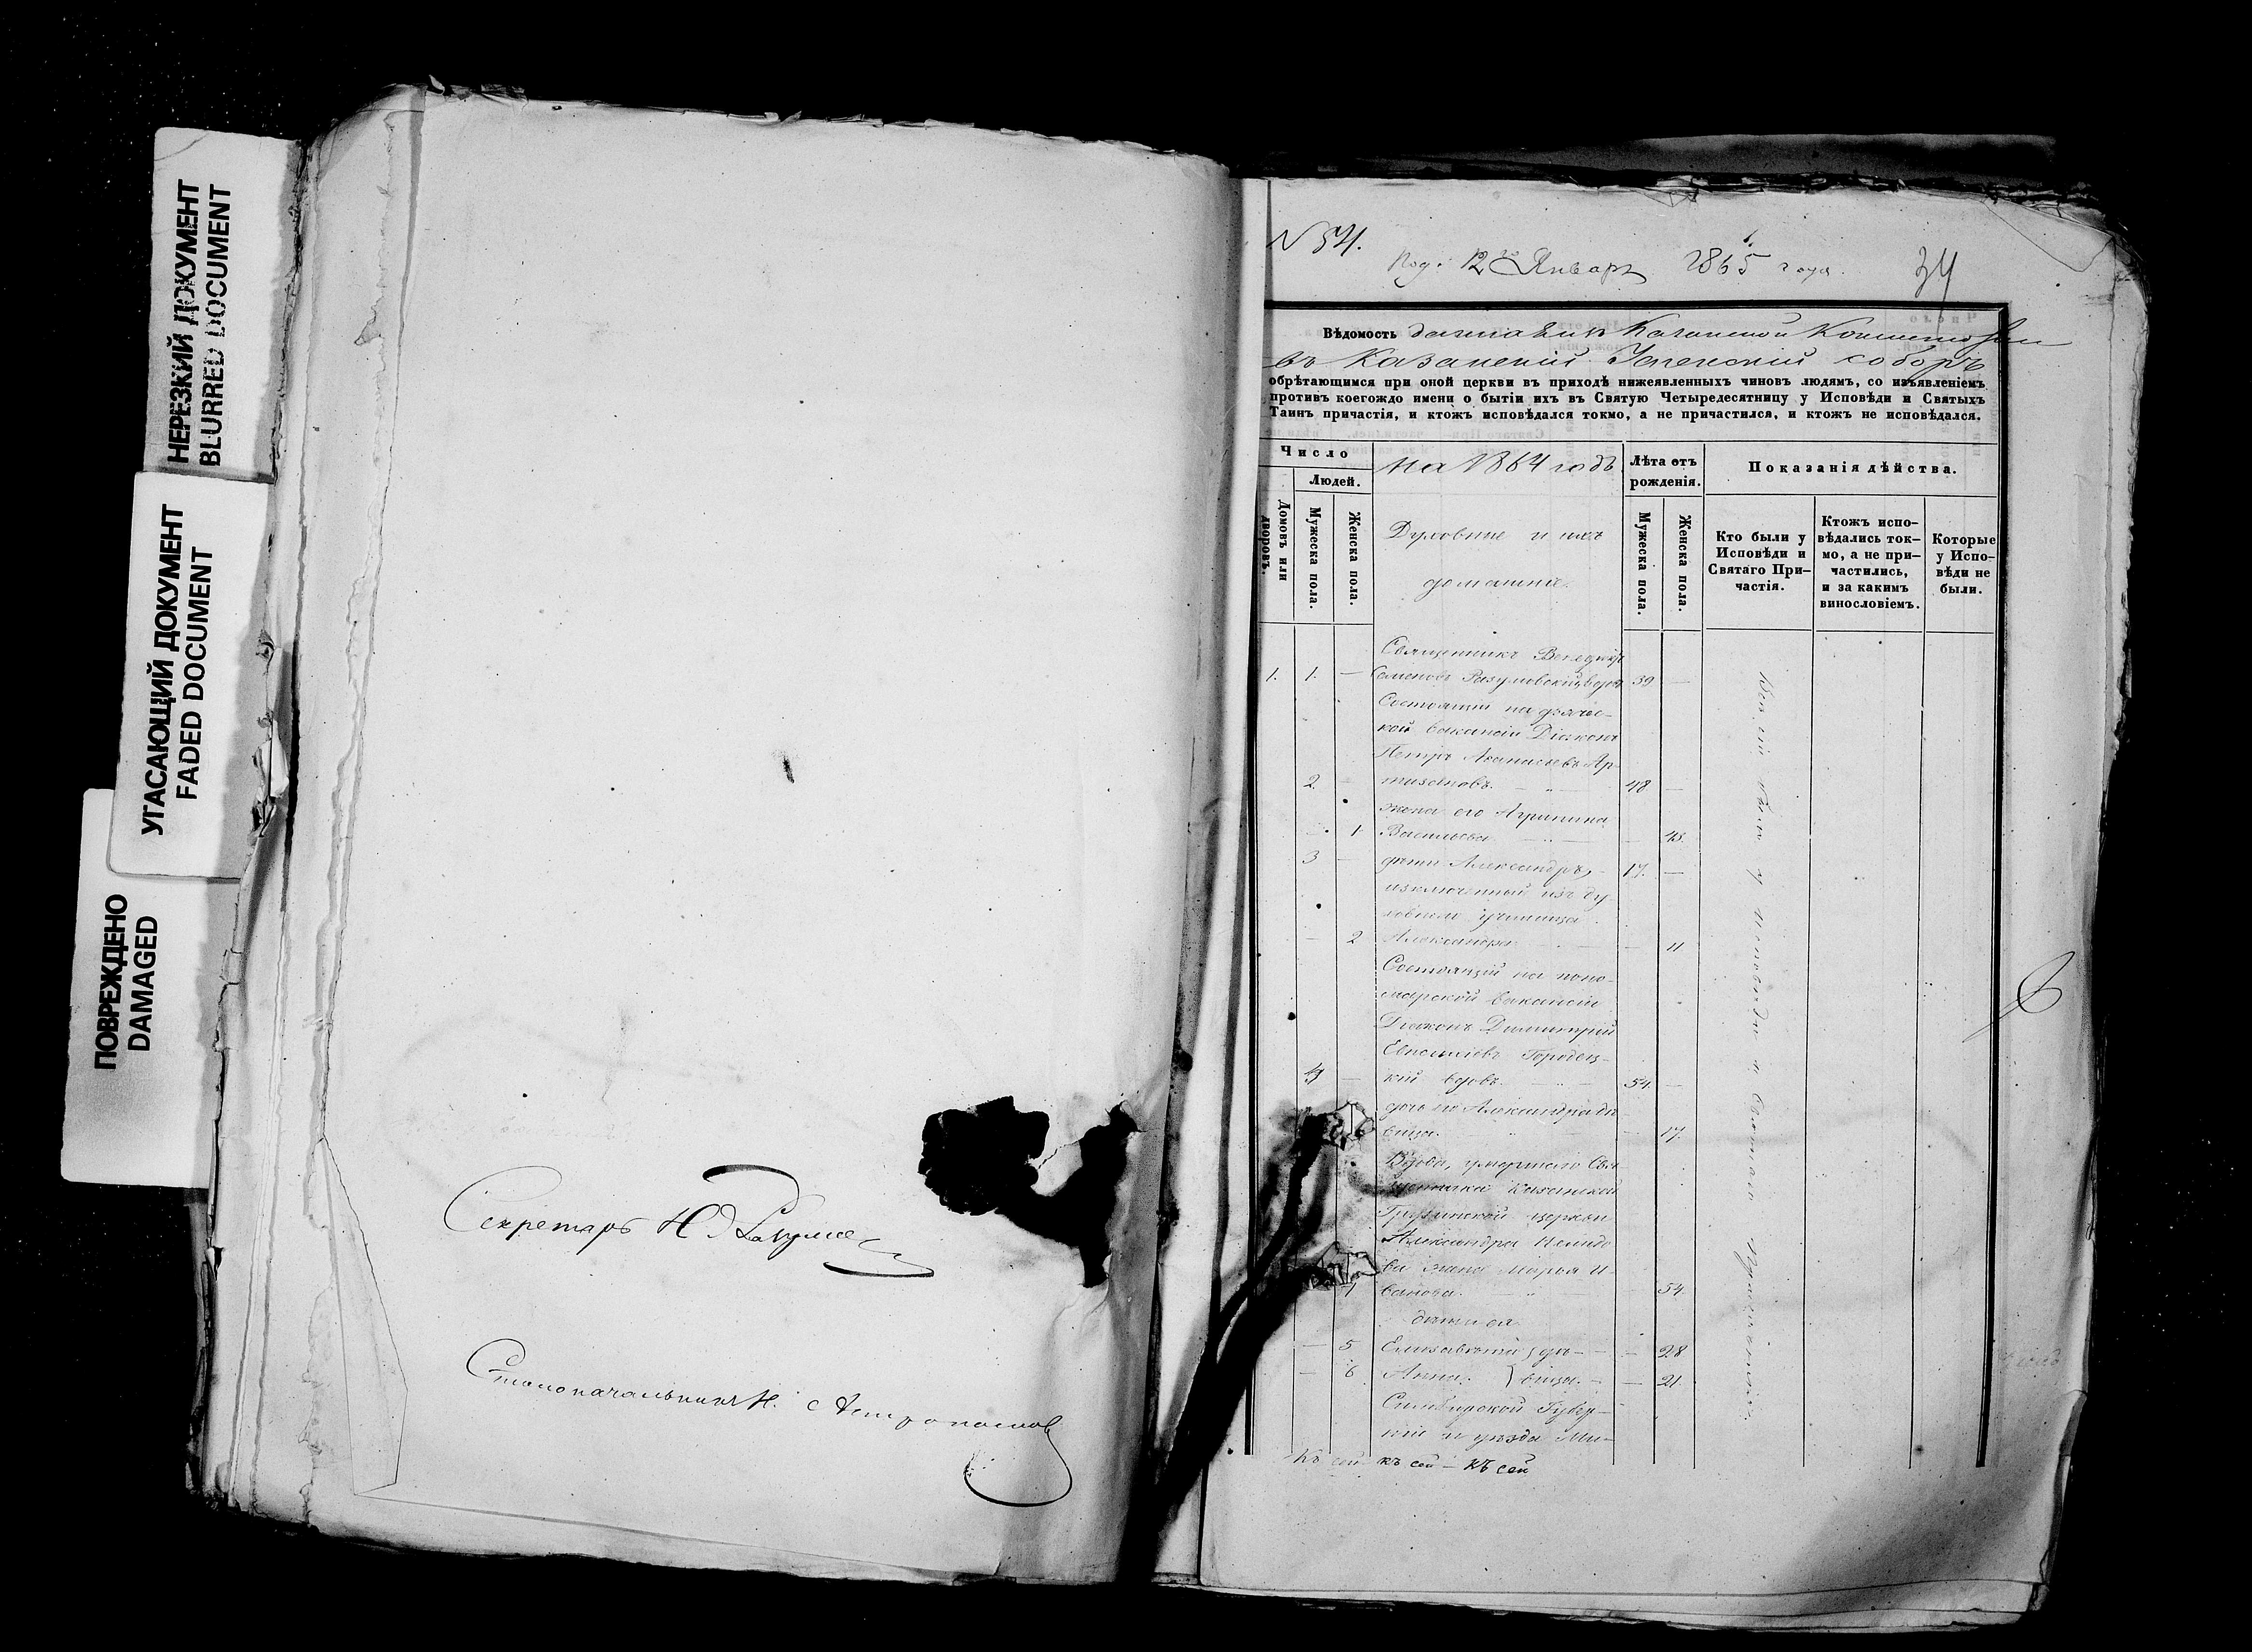 НЕРЕЗКИЙ ДОКУМЕНТ
BLURRED DOCUMENT
УГАСАЮЩИЙ ДОКУМЕНТ
FADED DOCUMENT
ПОВРЕЖДЕНО
DAMAGED
Секретарь
Столоначальникъ Н.
№ 54.
Под: 12го Января 1865 года.
34
Вѣдомость Казанской
въ Казанскій Успенскій соборъ
обрѣтающимся при оной церкви въ приходѣ нижеявленныхъ чиновъ людямъ, со изъявленіемъ
противъ коегождо имени о бытіи ихъ въ Святую Четыредесятницу у Исповѣди и Святыхъ
Таинъ причастія, и ктожъ исповѣдался токмо, а не причастился, и ктожъ не исповѣдался.
Число
Людей.
Домовъ или дворовъ.
Мужеска пола.
Женска пола.
на 1864 годъ
Духовные и ихъ
домашніе.
Лѣта отъ рожденія.
Мужеска пола.
Женска пола.
Показанія дѣйства.
Кто были у Исповѣди и Святаго Причастія.
Ктожъ исповѣдались токмо, а не причастились, и за какимъ винословіемъ.
Которые у Исповѣди не были.
Священникъ
1. 1. — Семеновъ Разумовскій, вдовъ 39 —
Состоящій на дьячес-
кой вакансіи Діаконъ
Петръ Аѳанасьевъ Ар-
2. — 48 —
жена его Агрипина
1 Васильева — 43.
3 — дѣти: Александръ, 17. —
изключенный изъ ду-
ховнаго училища.
— 2 Александра — 11
Состоящій на поно-
марской вакансіи
Діаконъ Димитрій
Городец-
4 — кій вдовъ. 54. —
дочь его Александра дѣ-
вица. — 17.
Вдова, умершаго Свя-
щенника Казанской
Грузинской церкви
Александра
ва жена Марья И-
4 ванова. 54.
дѣти ея
— 5 Елизавета } дѣ- — 28
— 6 Анна. } вицы. — 21.
Симбирской Губер-
ніи и уѣзда
были у исповѣди и Святаго Причастія.
Къ сей къ сей — КЪ сей